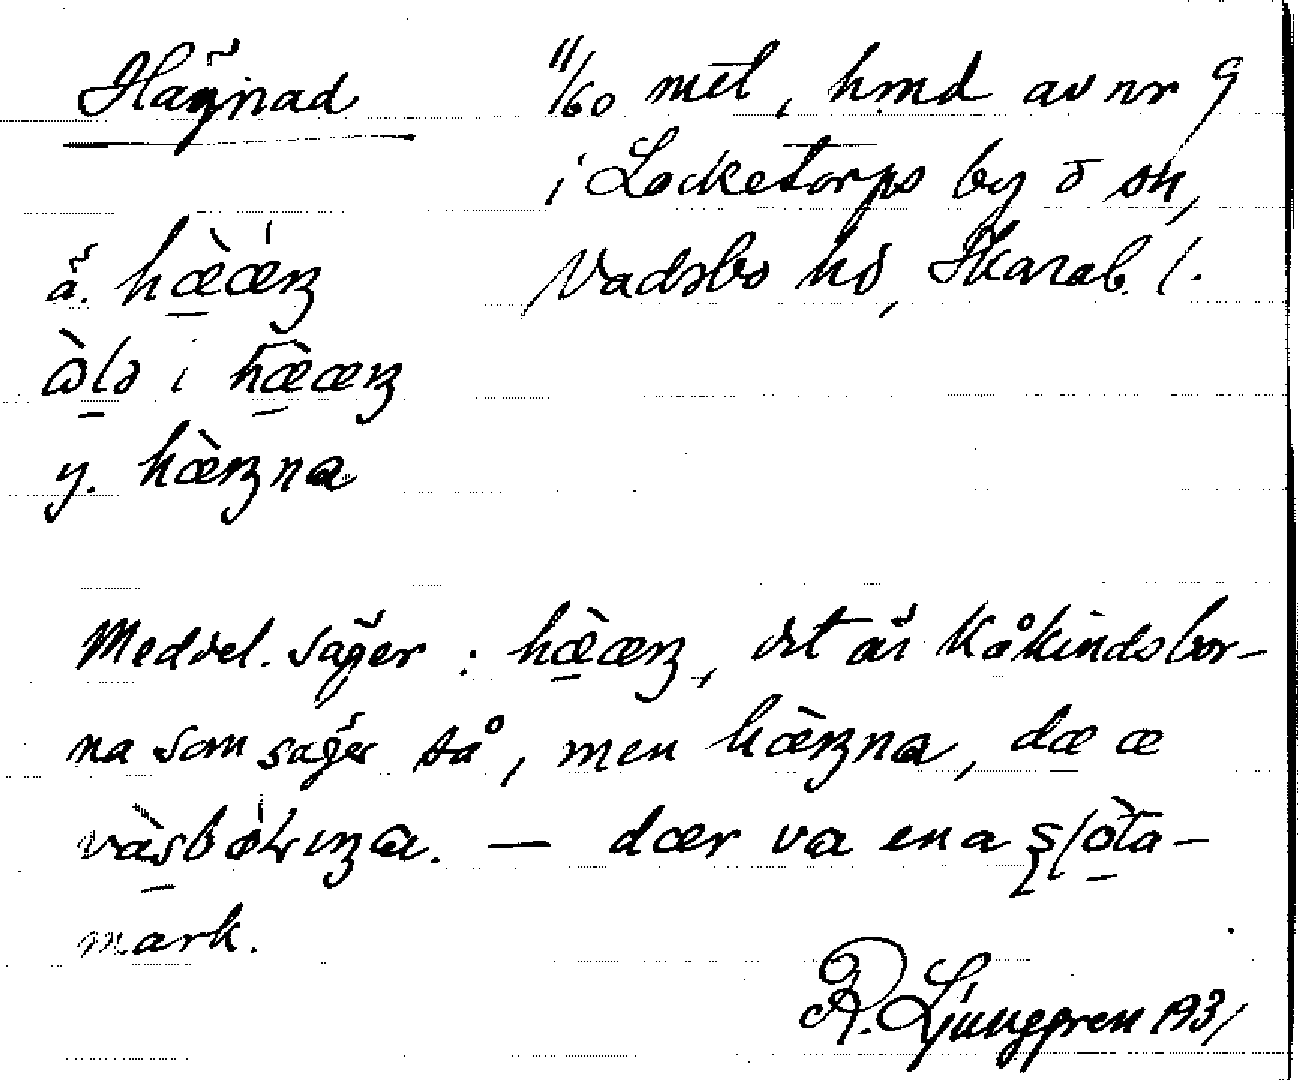 Hägnad
11/60 mtl, hmd av nr 9
i Locketorps by o sn,
Vadsbo hd, Skarab. l.
ä. hæ̀æ̍ŋ
i hæ̀æŋ
y. hæ̀ŋna
Meddel. säger : hæ̀æŋ, det är Kåkindsbor-
na som säger så, men hæ̀ŋna, dæ æ
— dær va ena
mark.
R. Ljunggren 1931